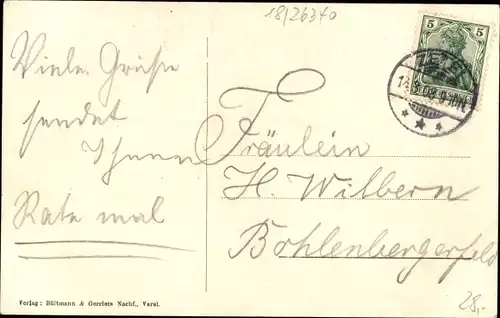 18/26340
5
ZETEL
Viele Grüße
sendet
Ihnen
Rate mal
Fräulein
H. Wilbern
Bohlenbergerfeld
28,-
Verlag: Bültmann & Gerriets Nachf., Varel.